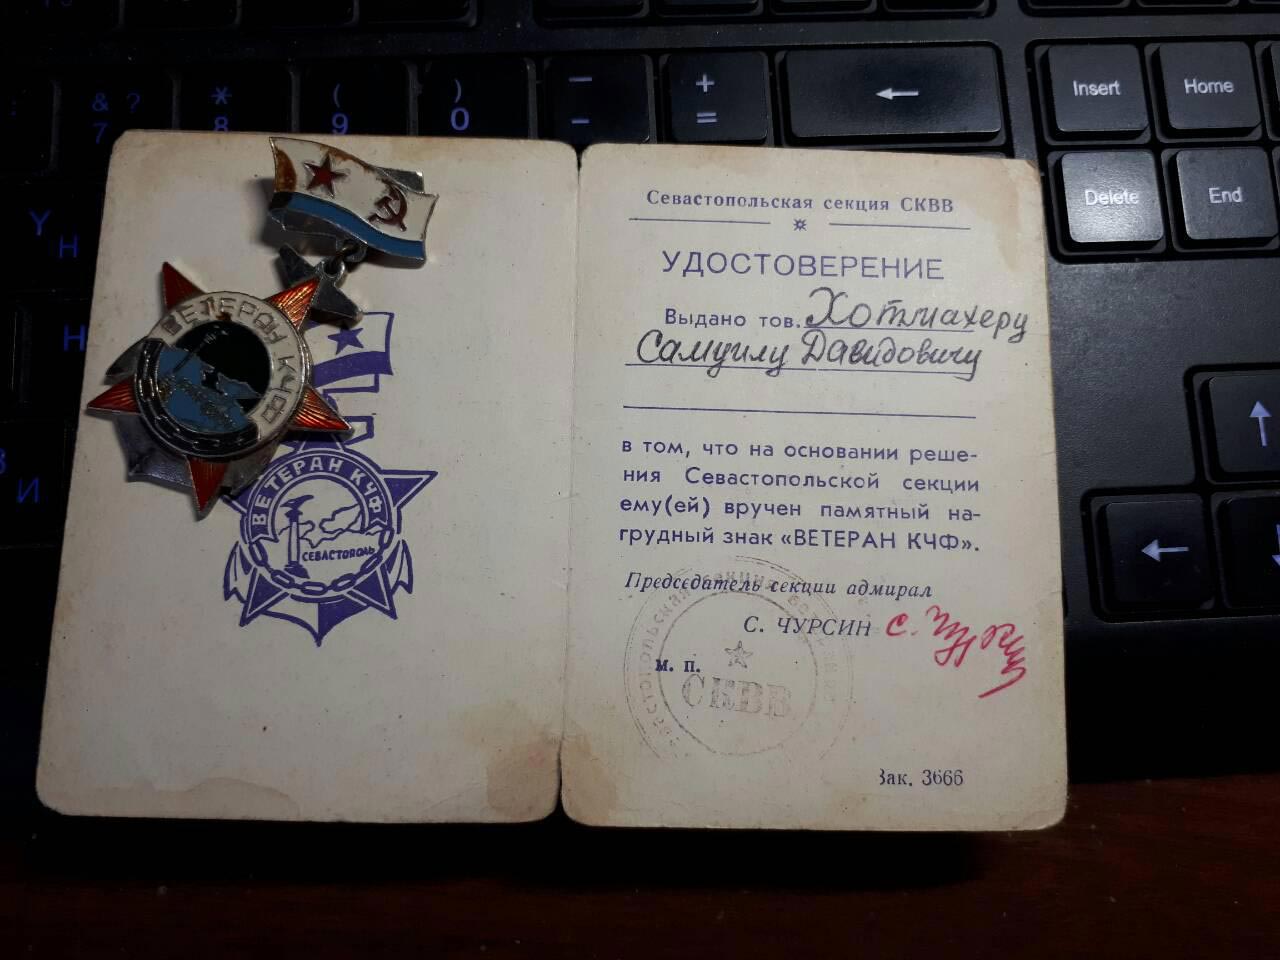 Insert
Home
Delete
End
& ?
7
*
8
(
9
)
0
-
-
+
=
Y
Н
Н
И
ВЕТЕРАН КЧФ
ВЕТЕРАН КЧФ
СЕВАСТОПОЛЬ
Севастопольская секция СКВВ
УДОСТОВЕРЕНИЕ
Выдано тов. Хотмахеру
Самуилу Давидовичу
в том, что на основании реше-
ния Севастопольской секции
ему(ей) вручен памятный на-
грудный знак «ВЕТЕРАН КЧФ».
Председатель секции адмирал
С. ЧУРСИН С. Чурсин
м. п.
СКВВ
Зак. 3666